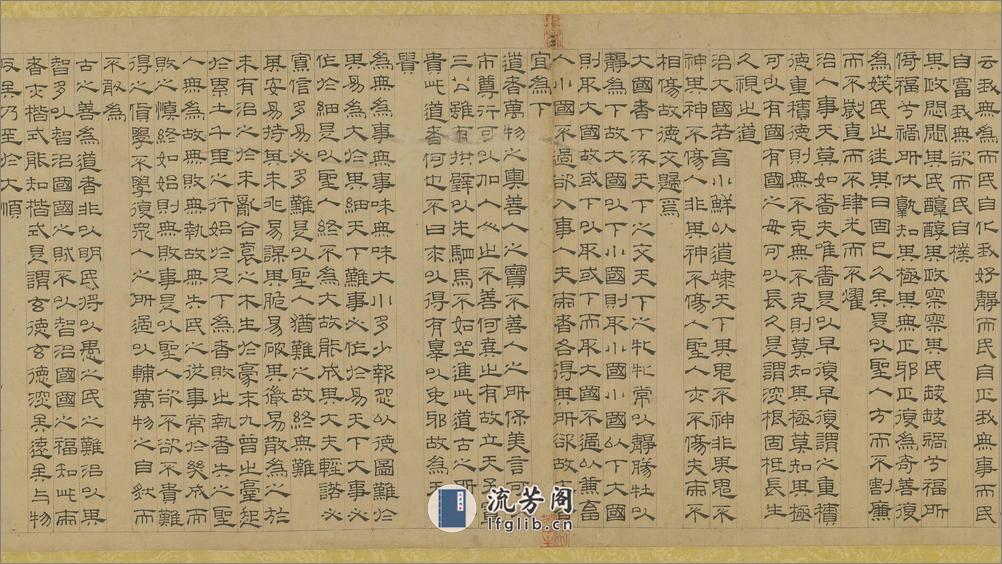 云我無為而民自化我好靜而民自正我無事而民
自富我無欲而民自樸
其政悶悶其民醇醇其政察察其民缺缺禍兮福所
倚福兮禍所伏孰知其極其無正邪正復為奇善復
為訞民之迷其日固已久矣是以聖人方而不割廉
而不劌直而不肆光而不耀
治人事天莫如嗇夫唯嗇是以早復早復謂之重積
德重積德則無不克無不克則莫知其極莫知其極
可以有國有國之母可以長久是謂深根固柢長生
久視之道
治大國若烹小鮮以道蒞天下其鬼不神非其鬼不
神其神不傷人非其神不傷人聖人亦不傷夫兩不
相傷故德交歸焉
大國者下流天下之交天下之牝牝常以靜勝牡以
靜為下故大國以下小國則取小國小國以下大國
則取大國故或下以取或下而取大國不過欲兼畜
人小國不過欲入事人夫兩者各得其所欲故大者
宜為下
道者萬物之奧善人之寶不善人之所保美言可
市尊行可以加人人之不善何棄之有故立天子
三公雖有拱璧以先駟馬不如坐進此道古之所
貴此道者何也不曰求以得有辠以免邪故為天
貴
為無為事無事味無味大小多少報怨以德圖難於
其易為大於其細天下難事必作於易天下大事必
作於細是以聖人終不為大故能成其大夫輕諾必
寡信多易必多難是以聖人猶難之故終無難
其安易持其未兆易謀其脆易破其微易散為之於
未有治之於未亂合褒之木生於豪末九曾之臺起
於累土千里之行始於足下為者敗之執者失之聖
人無為故無敗無執故無失民之從事常於幾成而
敗之慎終如始則無敗事是以聖人欲不欲不貴難
得之貨學不學復眾人之所過以輔萬物之自然而
不敢為
古之善為道者非以明民將以愚之民之難治以其
智多以智治國國之賊不以智治國國之福知此兩
者亦楷式能知楷式是謂玄德玄德深矣遠矣與物
反矣乃至於大順
流芳阁
lfglib.cn